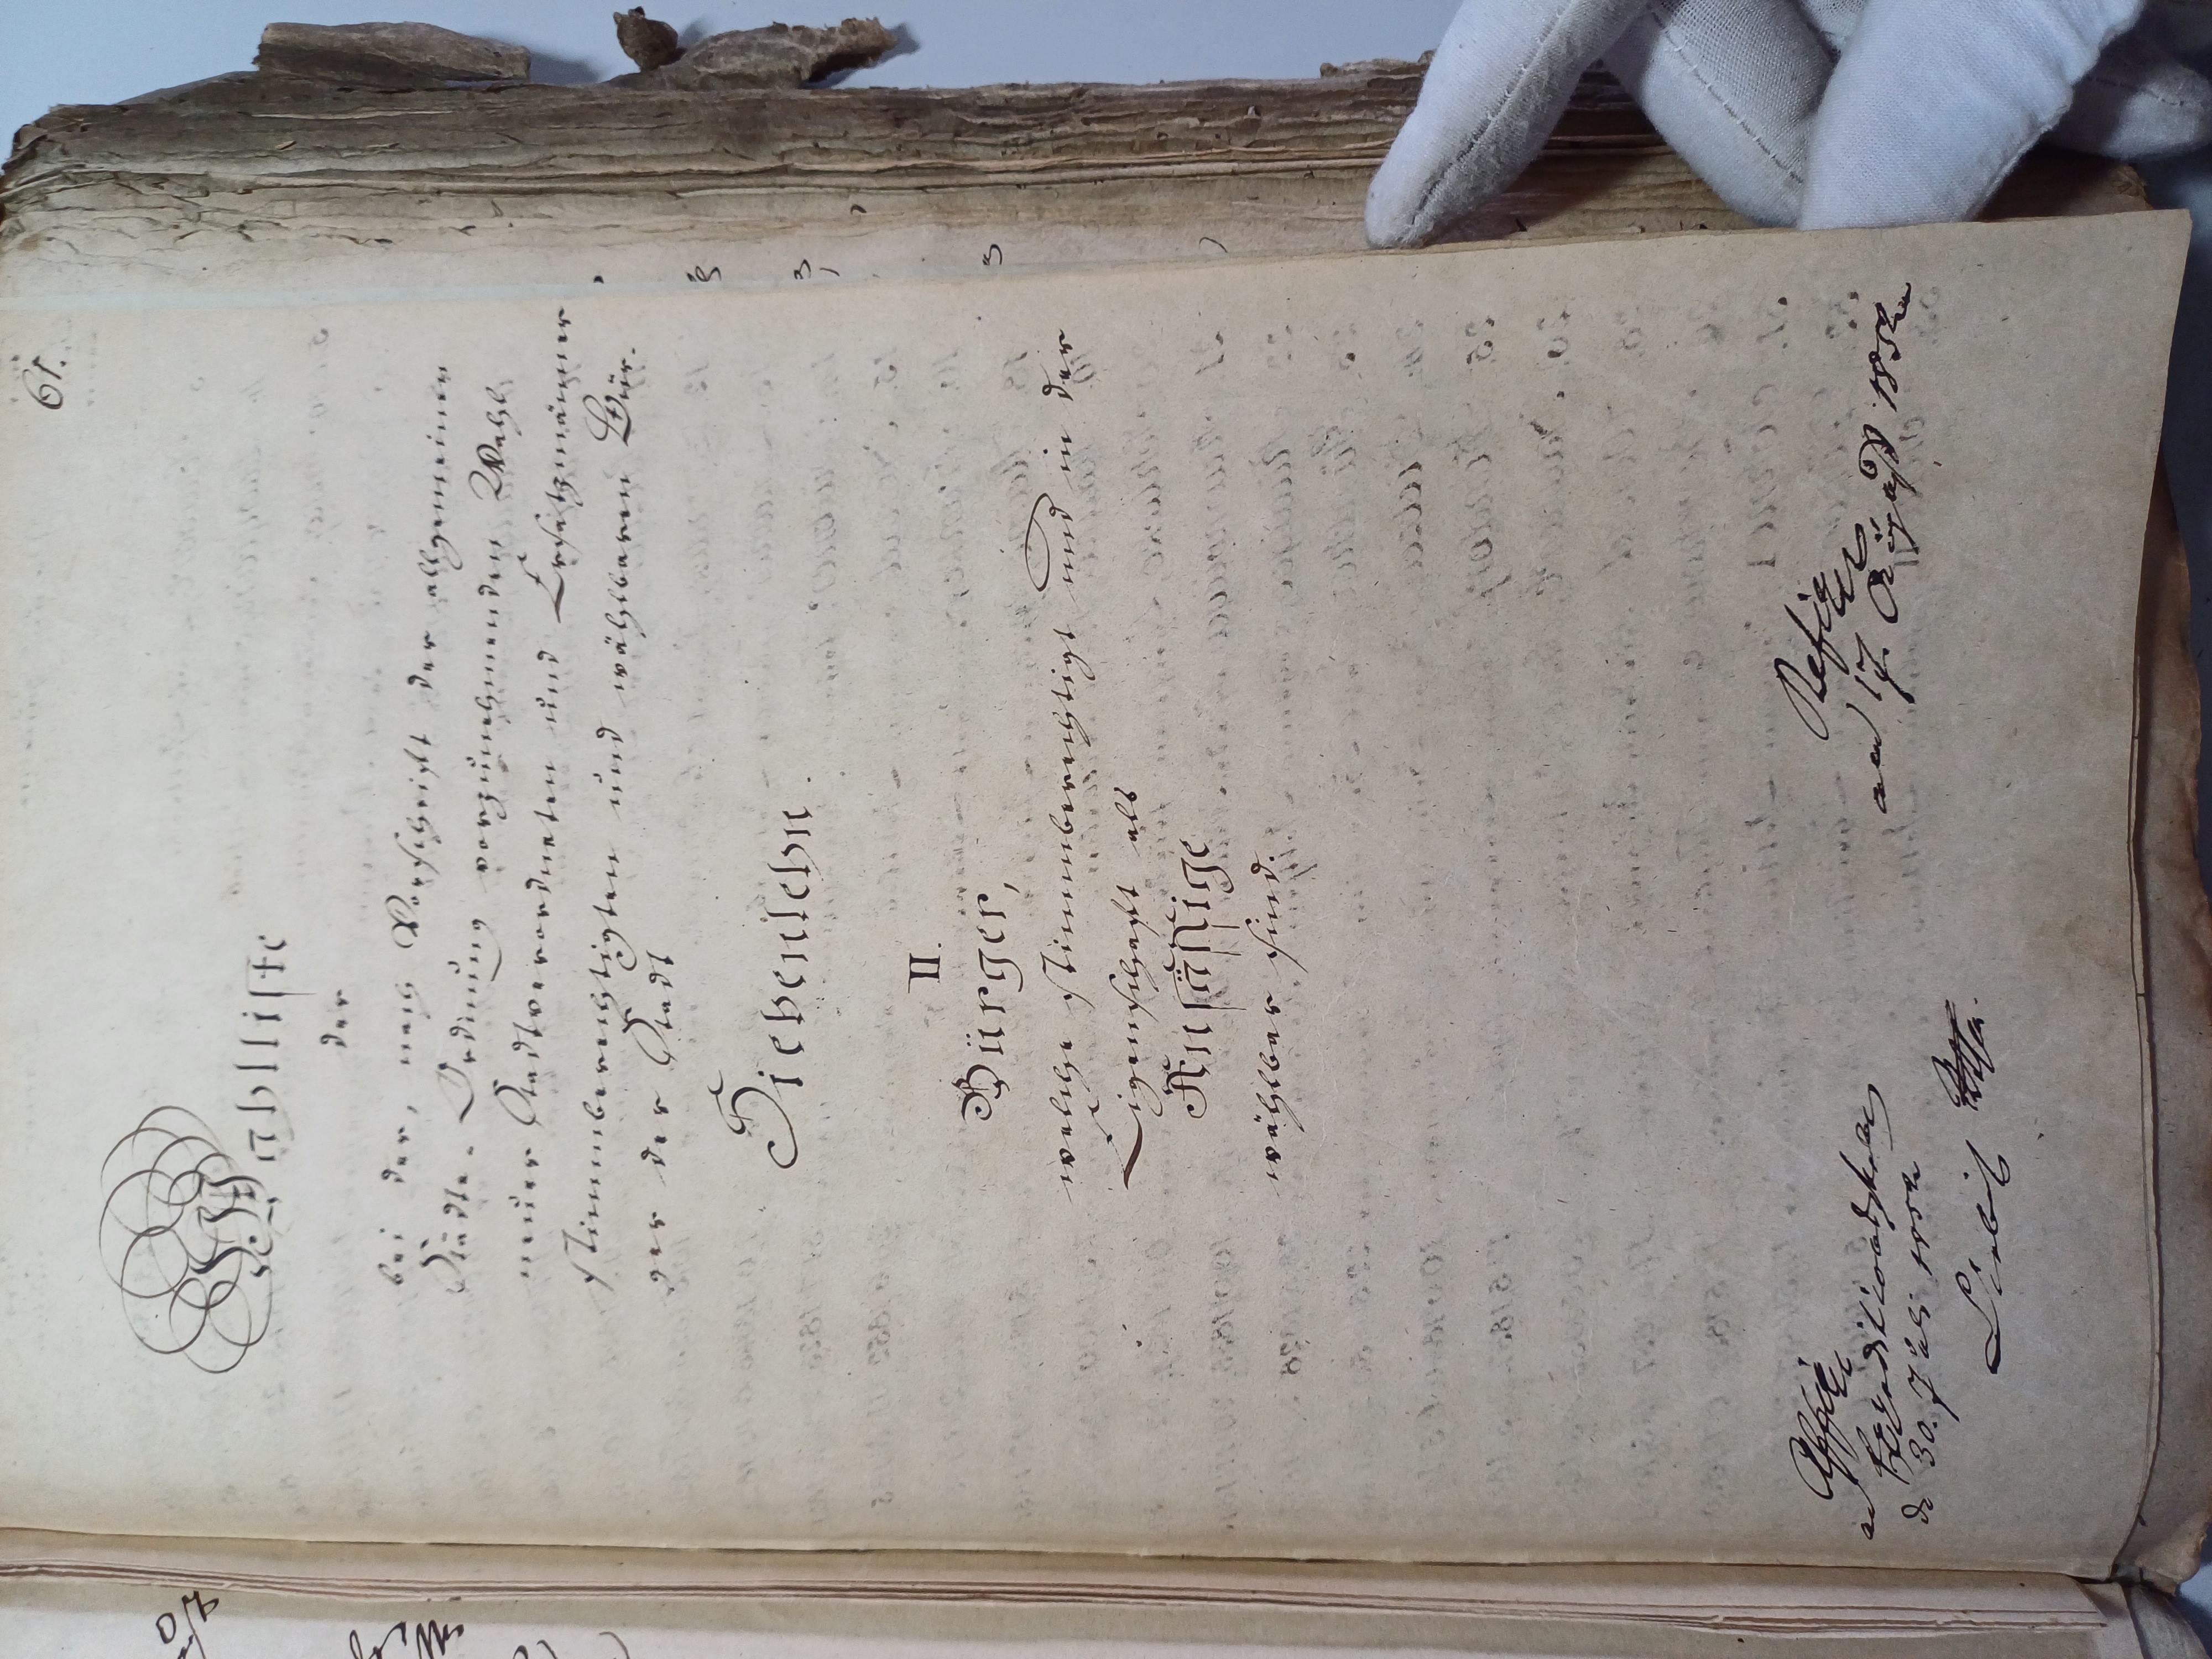 61.
Wahlliste
der
bei der, nach Vorschrift der allgemeinen
Städte-Ordnung vorzunehmenden Wahl
neuer Stadtverordneten und Ersatzmänner
stimmberechtigten und wählbaren Bür-
ger der Stadt
Siebenlehn.
II.
Bürger,
welche stimmberechtigt und in der
Eigenschaft als
Ansäßige
wählbar sind.
Affig.
den 30. Juli
Liebig
Refig.
am 17. August